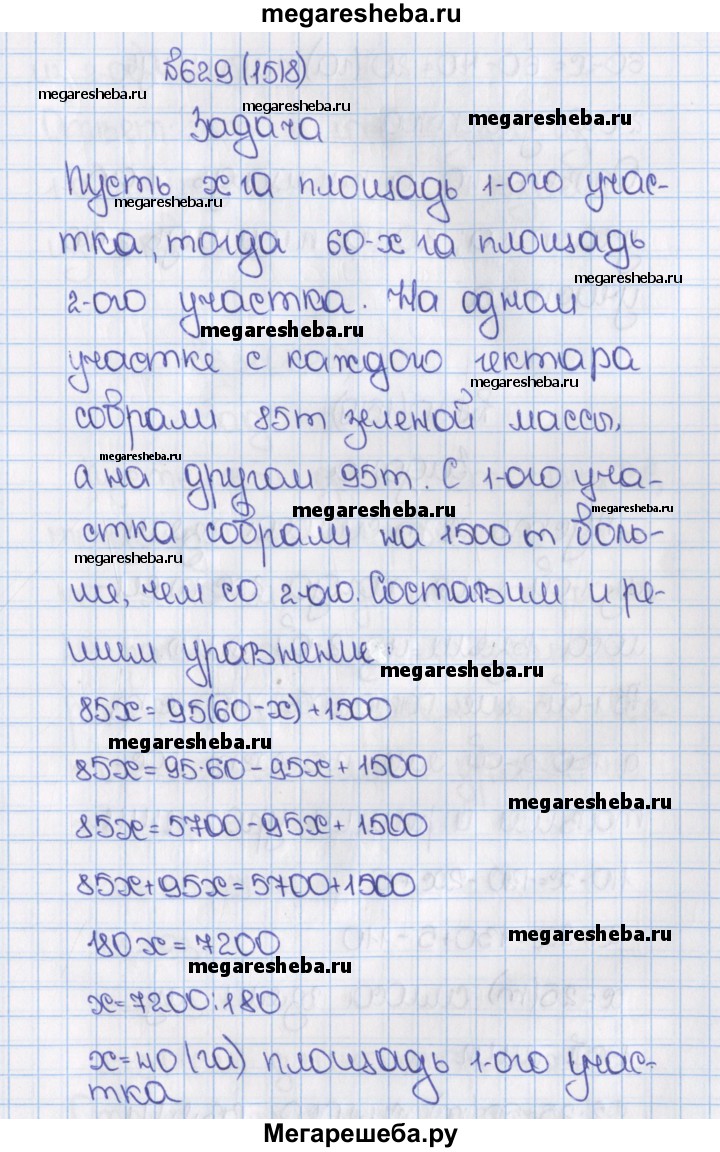 megaresheba.ru
№629 (1518)
megaresheba.ru megaresheba.ru megaresheba.ru
Задача
Пусть x га площадь 1-ого учас-
megaresheba.ru
тка, тогда 60-x га площадь
megaresheba.ru
2-ого участка. На одном
megaresheba.ru
участке с каждого гектара
megaresheba.ru
собрали 85т зеленой массы,
megaresheba.ru
а на другом 95т. С 1-ого уча-
megaresheba.ru megaresheba.ru
стка собрали на 1500 т боль-
megaresheba.ru
ше, чем со 2-ого. Составим и ре-
шим уравнение:
megaresheba.ru
85x = 95(60-x)+1500
megaresheba.ru
85x = 95·60-95x+1500
megaresheba.ru
85x = 5700-95x+1500
85x+95x = 5700+1500
180x = 7200
megaresheba.ru
megaresheba.ru
x=7200:180
x=40 (га) площадь 1-ого учас-
тка
Мегарешеба.ру